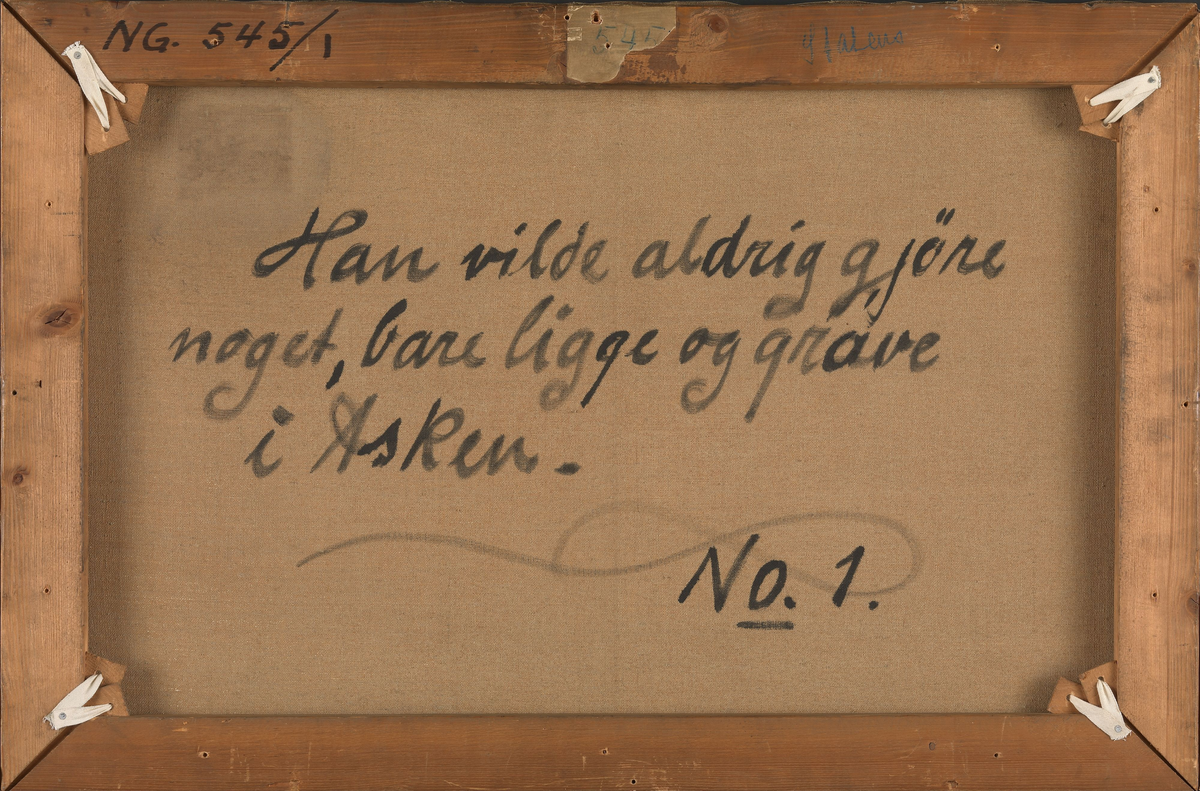 NG. 545/1
545
Han vilde aldrig gjöre
noget, bare ligge og grave
i Asken.
No. 1.